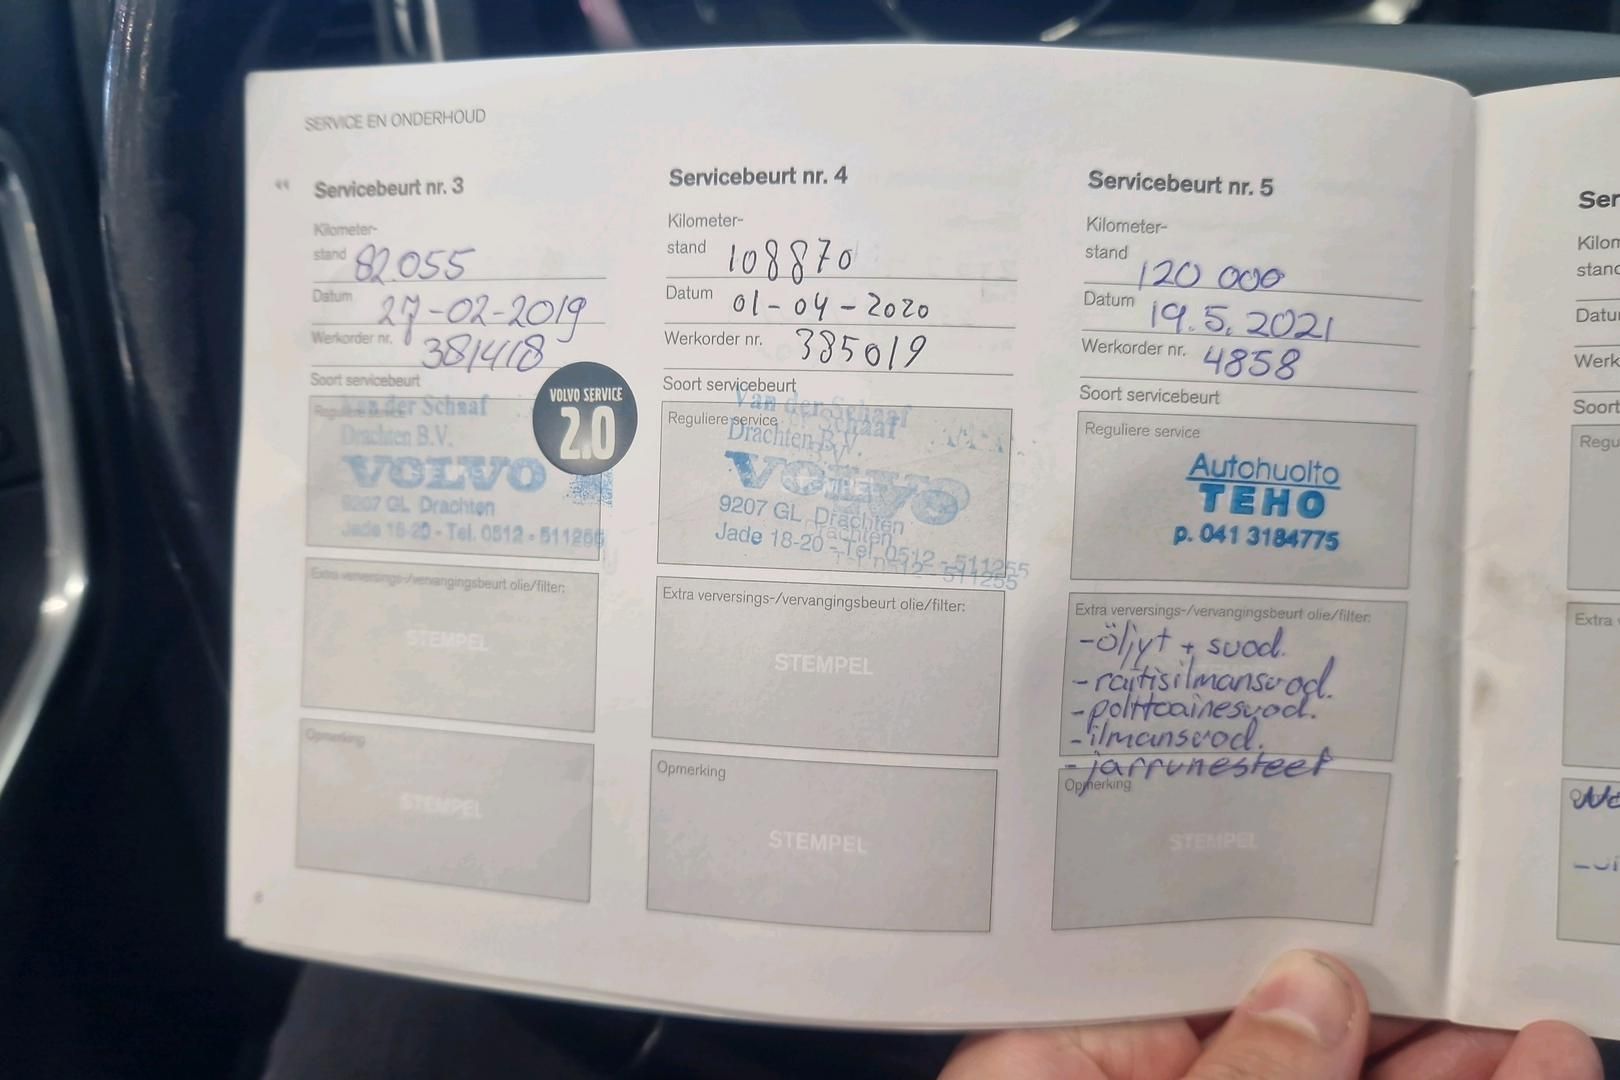 SERVICE EN ONDERHOUD
Servicebeurt nr. 3
Kilometer-
stand 82.055
Datum 27-02-2019
Werkorder nr. 381418
Soort servicebeurt
Reguliere service
Van der Schaaf
Drachten B.V.
VOLVO
9207 GL Drachten
Jade 18-20 - Tel. 0512 - 511255
VOLVO SERVICE
2.0
Extra verversings-/vervangingsbeurt olie/filter:
STEMPEL
Opmerking
STEMPEL
6
Servicebeurt nr. 4
Kilometer-
stand 108870
Datum 01-04-2020
Werkorder nr. 385019
Soort servicebeurt
Reguliere service
Van der Schaaf
Drachten B.V.
VOLVO
9207 GL Drachten
Jade 18-20 - Tel. 0512 - 511255
Extra verversings-/vervangingsbeurt olie/filter:
STEMPEL
Opmerking
STEMPEL
Servicebeurt nr. 5
Kilometer-
stand 120 000
Datum 19.5.2021
Werkorder nr. 4858
Soort servicebeurt
Reguliere service
Autohuolto
TEHO
p. 041 3184775
Extra verversings-/vervangingsbeurt olie/filter:
-öljyt + suod.
-raitisilmansuod.
-polttoainesuod.
-ilmansuod.
-jarruneste et
Opmerking
STEMPEL
Ser
Kilom
stand
Datu
Werk
Soort
Regu
Extra